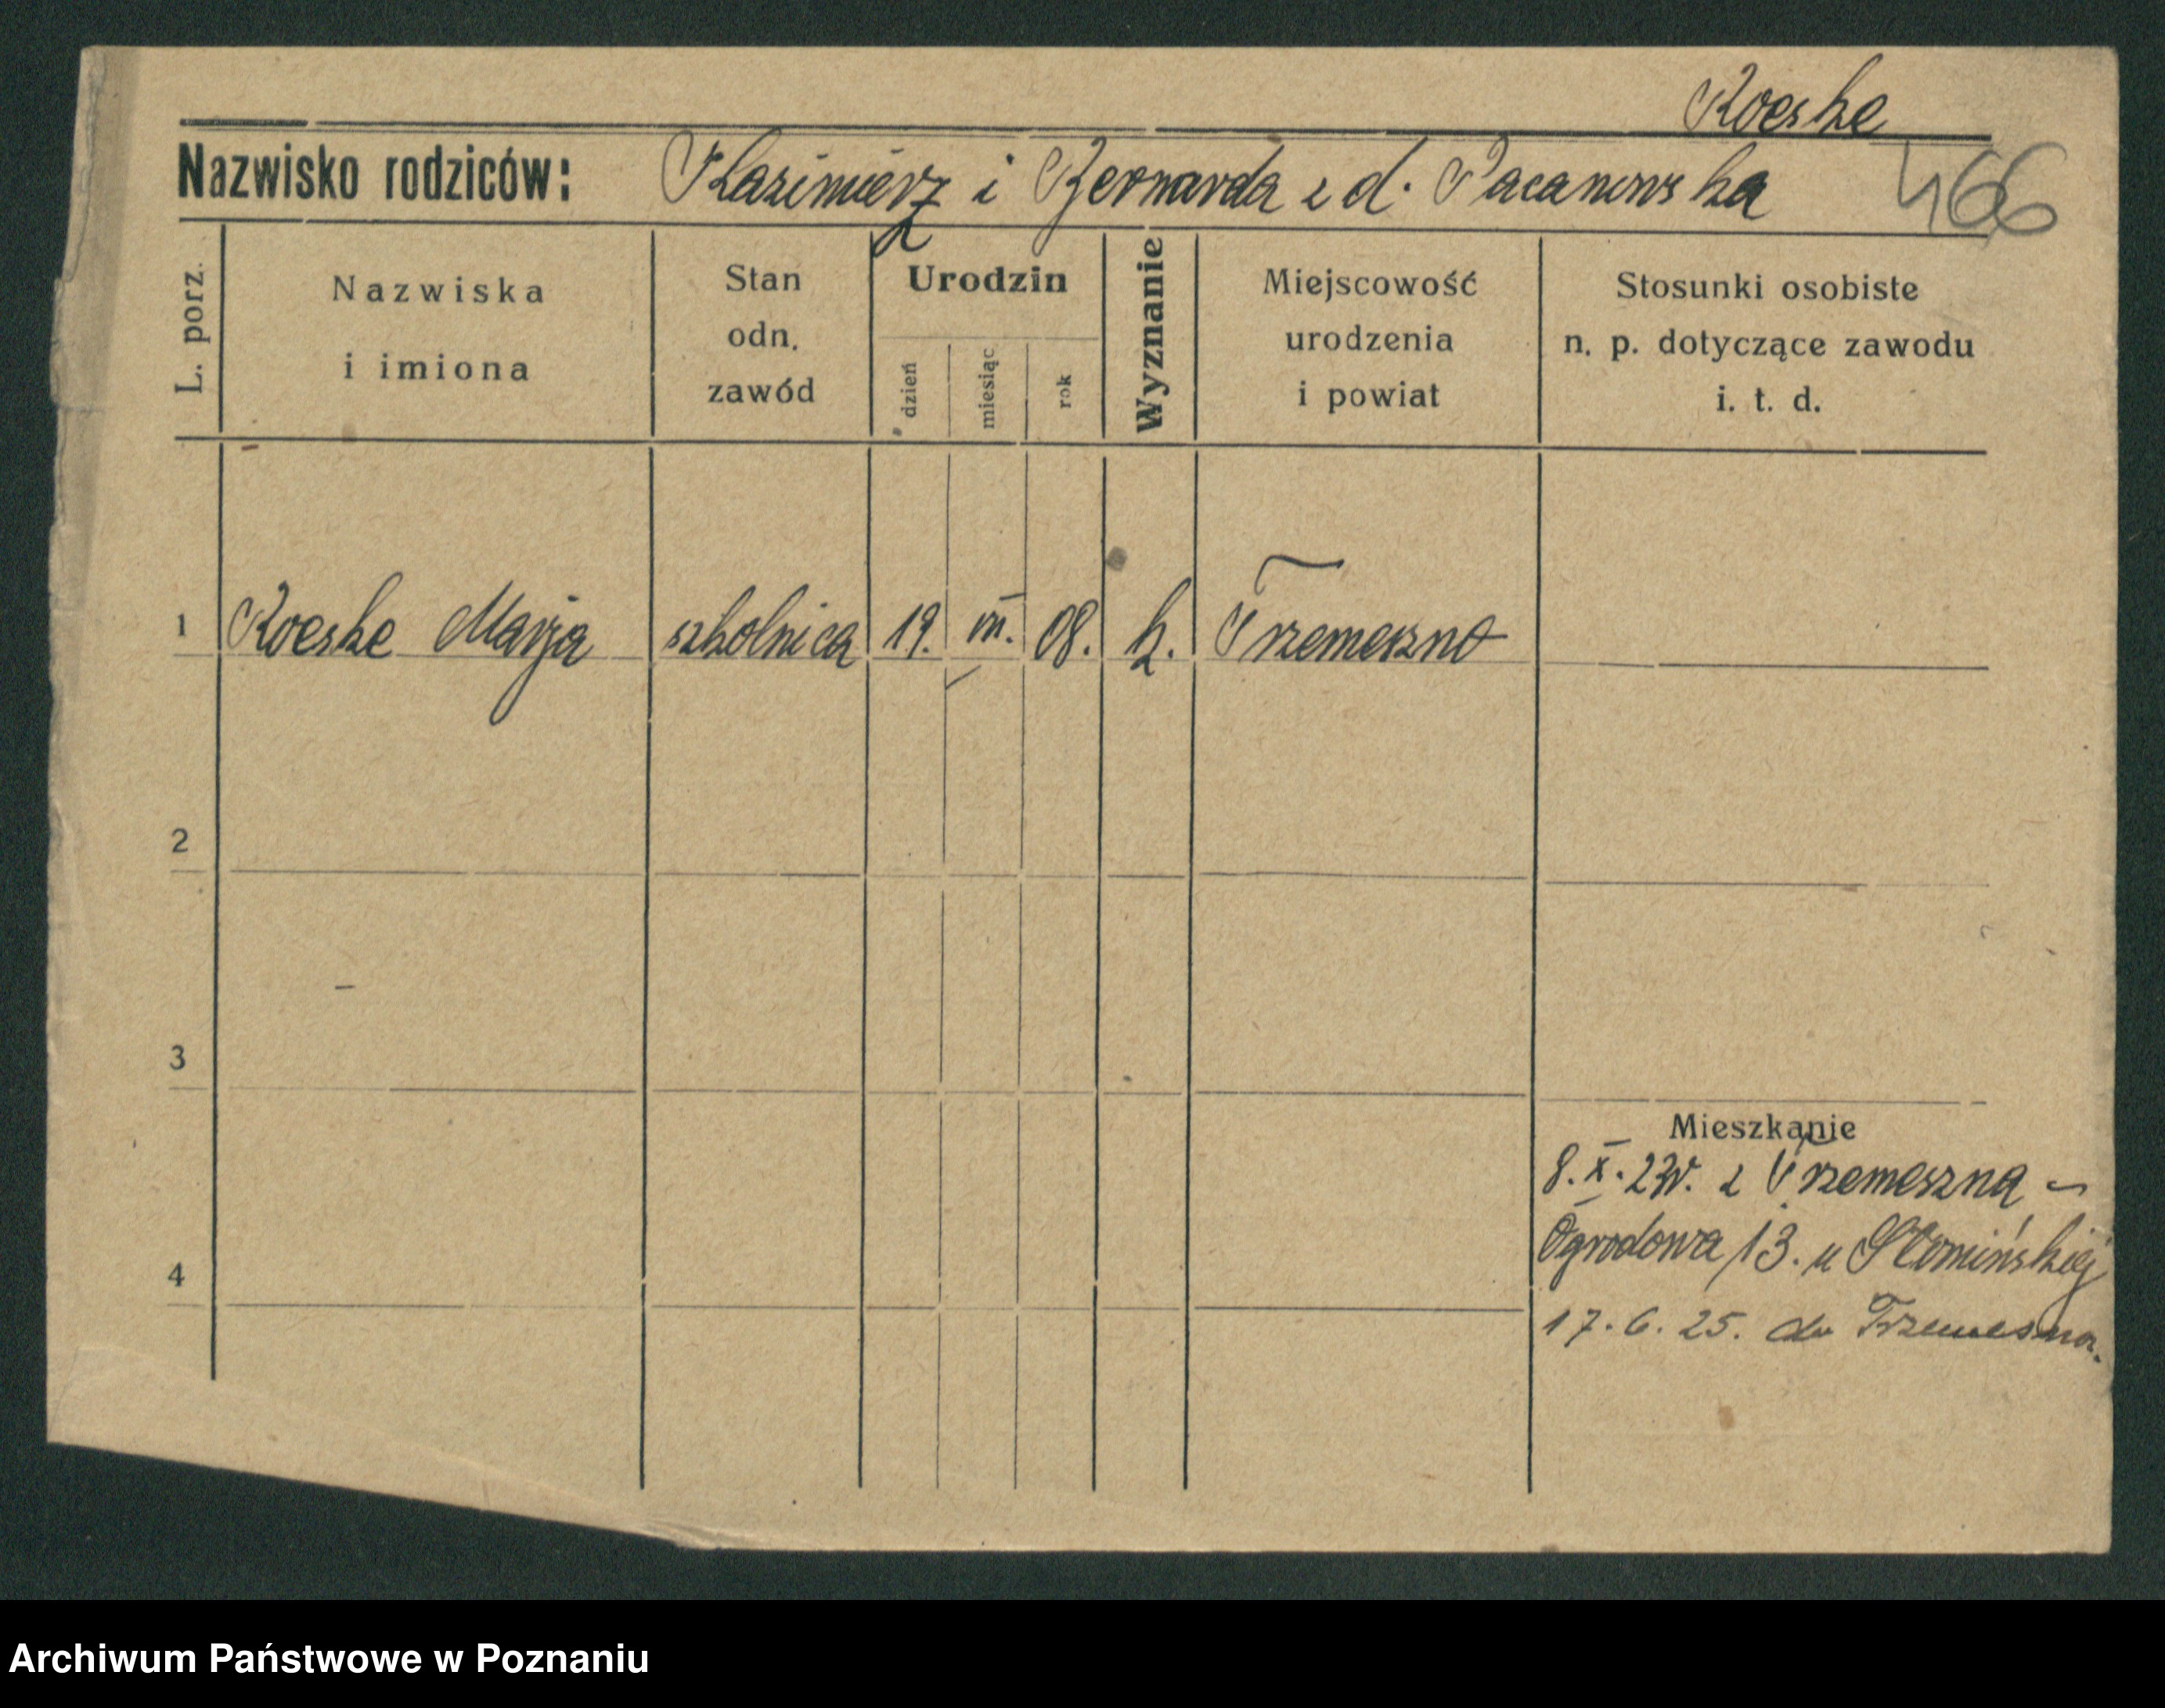 Roeske
Nazwisko rodziców: Kazimierz i Bernarda z d. Pacanowska
466
L. porz.
Nazwiska
i imiona
Stan
odn.
zawód
Urodzin
dzień
miesiąc
rok
Wyznanie
Miejscowość
urodzenia
i powiat
Stosunki osobiste
n. p. dotyczące zawodu
i. t. d.
1 Roeske Marja szkolnica 19. VII. 08. k. Trzemeszno
2
3
4
Mieszkanie
8. X. 23r. z Trzemeszna –
Ogrodowa 13. u Słomińskiej
17. 6. 25. do Trzemeszna.
Archiwum Państwowe w Poznaniu